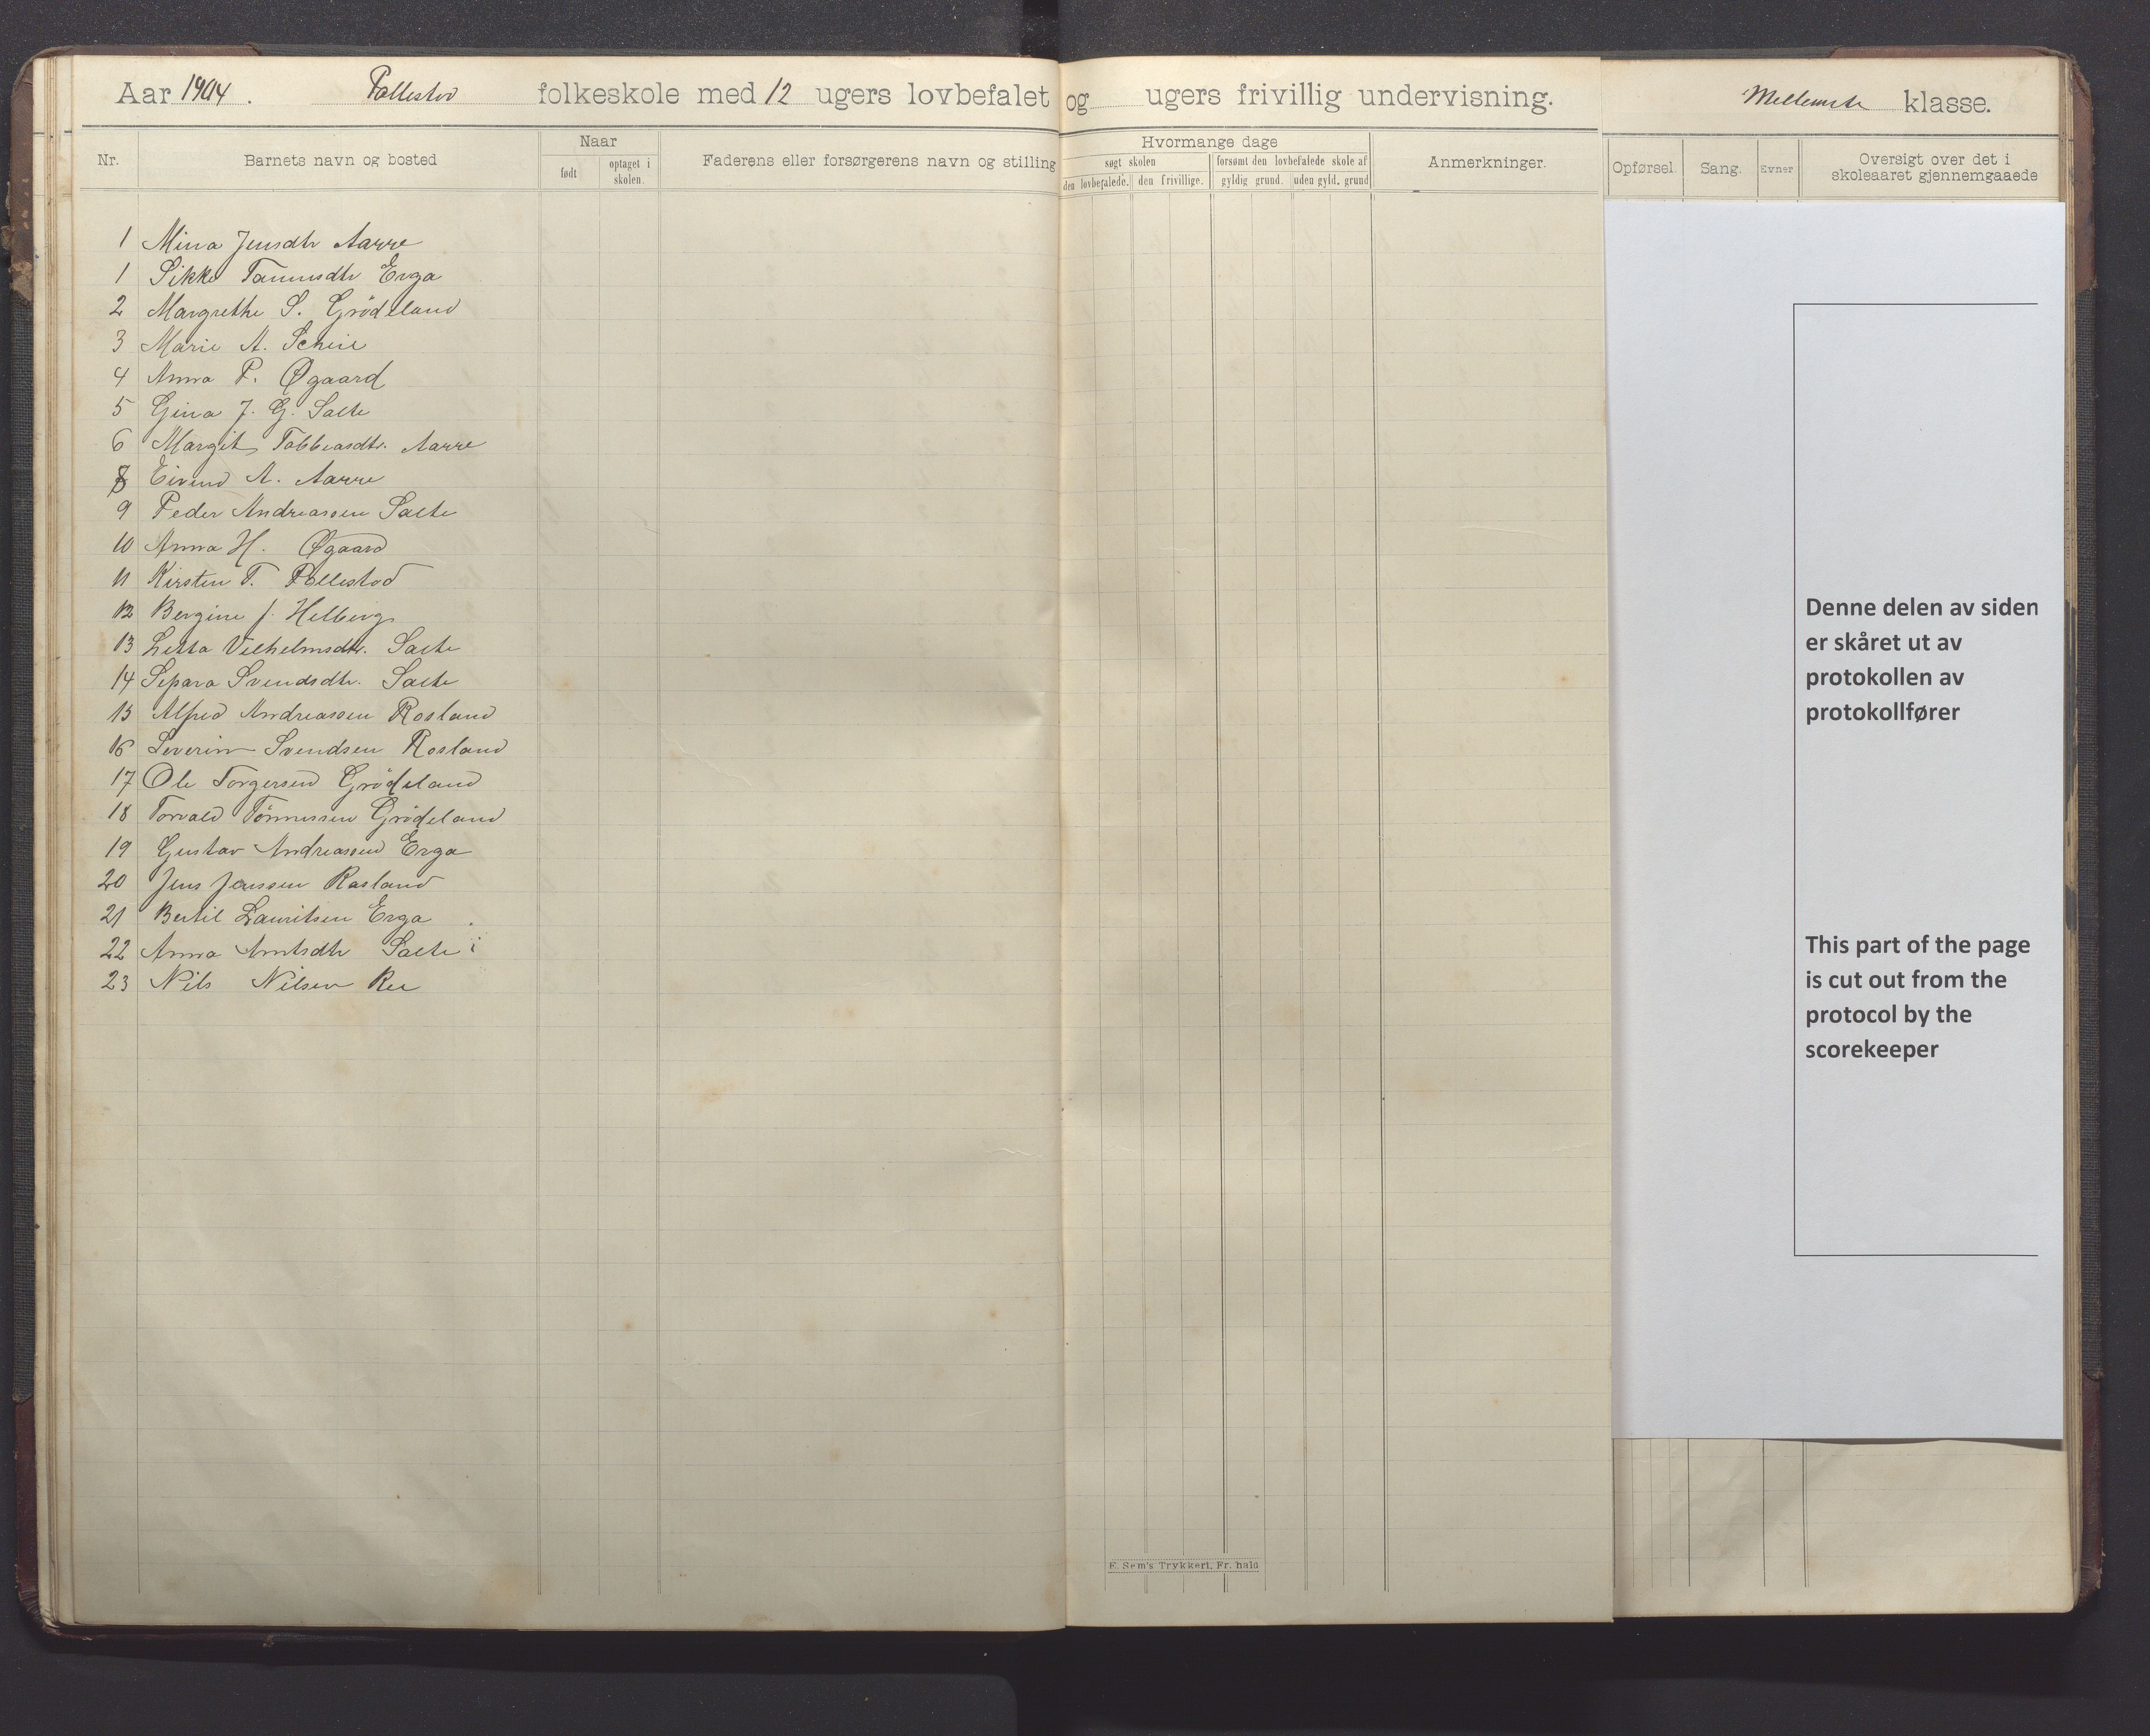 Aar 1904. Pollestad folkeskole med 12 ugers lovbefalet og ugers frivillig undervisning. Mellemste klasse.
Nr.
Barnets navn og bosted
Naar
født
optaget i
skolen.
Faderens eller forsørgerens navn og stilling
Hvormange dage
søgt skolen
den lovbefalede. den frivillige.
forsømt den lovbefalede skole af
gyldig grund. uden gyld. grund
Anmerkninger.
Opførsel.
Sang.
Evner
Oversigt over det i
skoleaaret gjennemgaaede
1 Mina Jensdtr Aarre
1 Sikke Tønnesdtr Erga
2 Margrethe S. Grödeland
3 Marie A. Scheie
4 Anna P. Øgaard
5 Gina J. G. Salte
6 Margit Tobbiasdtr. Aarre
8 Eivind A. Aarre
9 Peder Andreassen Salte
10 Anna H. Øgaard
11 Kirsten T. Pollestad
12 Bergine J. Helberg
13 Letta Vilhelmsdtr. Salte
14 Sepora Svendsdtr. Salte
15 Alfred Andreassen Rosland
16 Severin Svendsen Rosland
17 Ole Torgersen Grödeland
18 Torvald Tönnessen Grödeland
19 Gustav Andreassen Erga
20 Jens Jenssen Rosland
21 Bertil Lauritsen Erga
22 Anna Arntsdtr Salte
23 Nils Nilsen Ree
Denne delen av siden
er skåret ut av
protokollen av
protokollfører
This part of the page
is cut out from the
protocol by the
scorekeeper
E. Sem's Trykkeri, Fr. hald